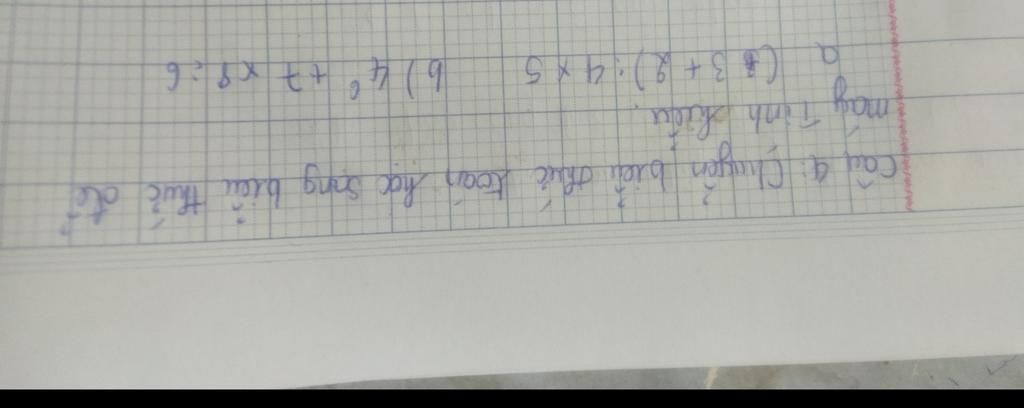 Câu 4: Chuyển biểu thức toán học sang biểu thức để
máy tính hiểu.
a (3 + 2) : 4 x 5 b) 4⁶ + 7 x 8 : 6